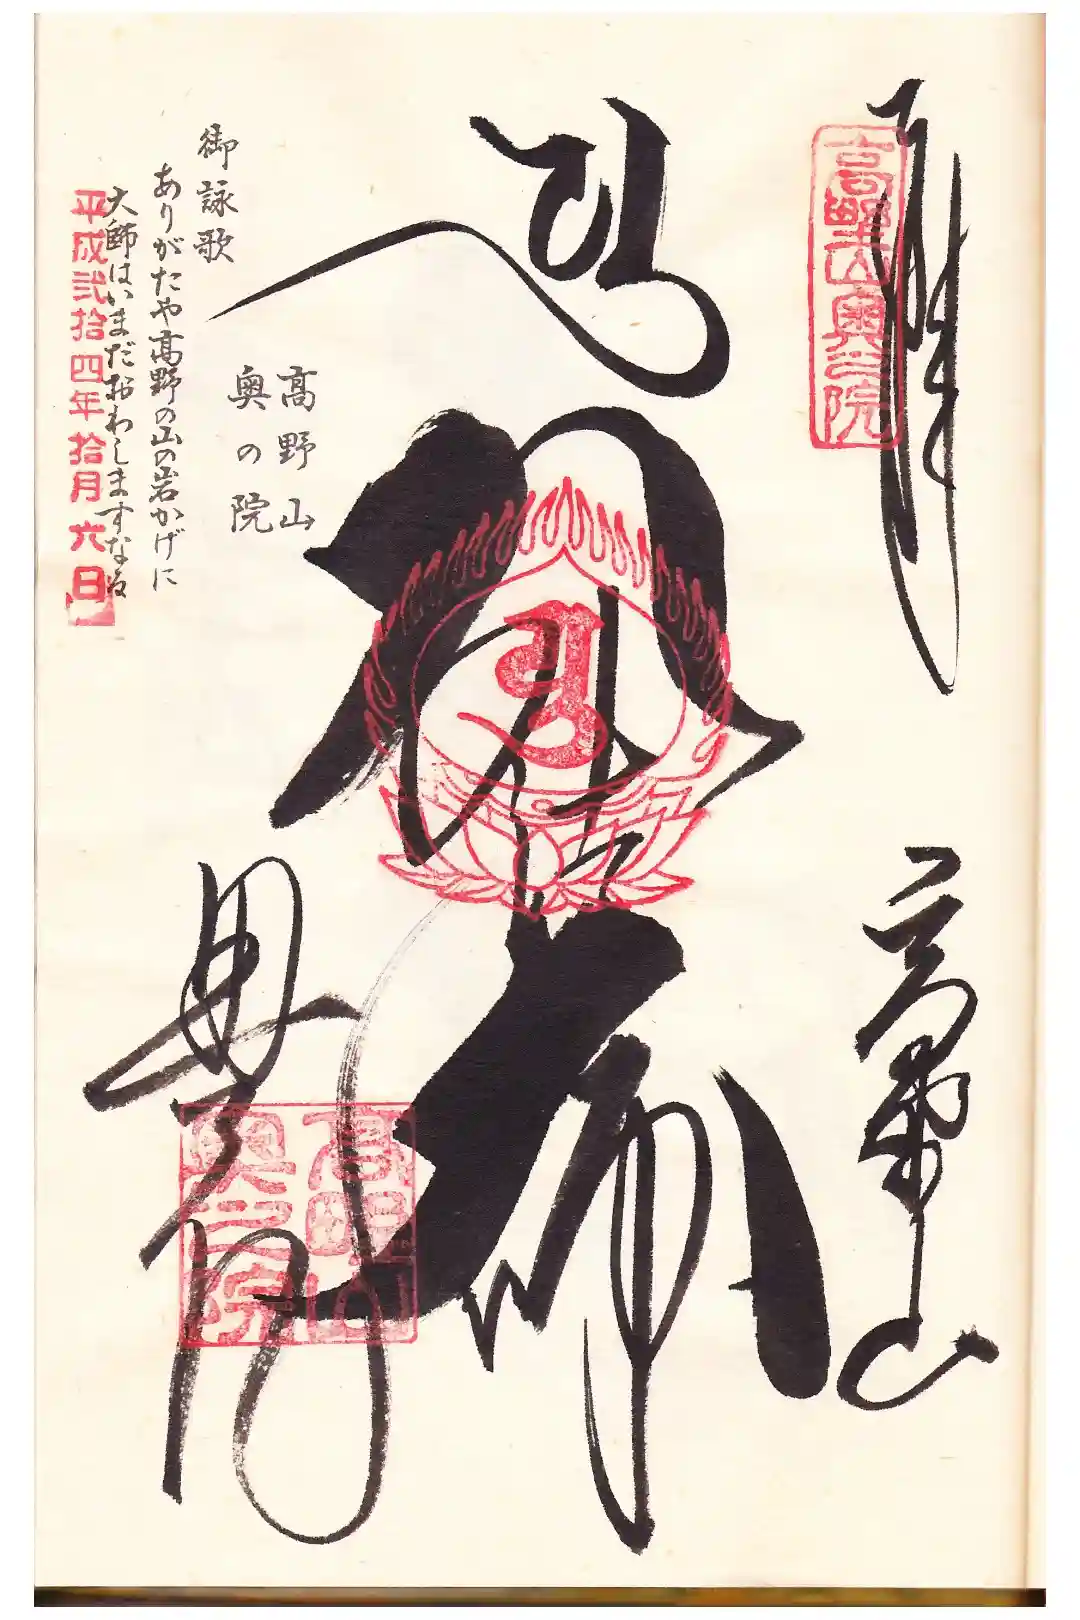 奉拝
高野山
高野山奥之院
高野山
奥之院
高野山
奥の院
御詠歌
ありがたや高野の山の岩かげに
大師はいまだおわしますなる
平成弐拾四年拾月六日